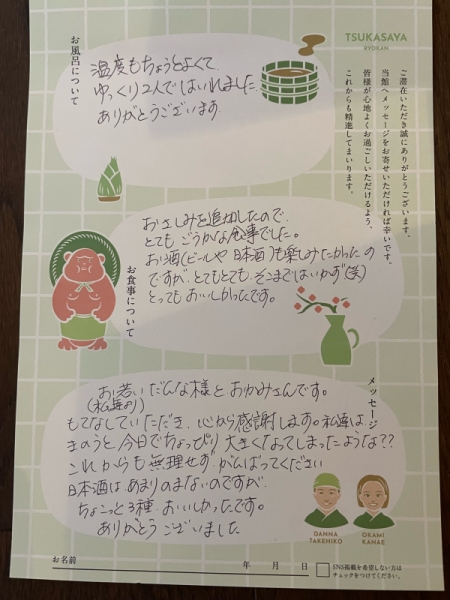 お風呂について
温度もちょうどよくて、
ゆっくり2人ではいれました。
ありがとうございます。
TSUKASAYA
RYOKAN
ご滞在いただき誠にありがとうございます。
当館へメッセージをお寄せいただければ幸いです。
皆様が心地よくお過ごしいただけるよう、
これからも精進してまいります。
お食事について
おさしみを追加したので、
とてもごうかな食事でした。
お酒(ビールや日本酒)も楽しみたかったの
ですが、とてもとても、そこまではいかず(笑)
とってもおいしかったです。
メッセージ
お若いだんな様とおかみさんです。
(私達より)
もてなしていただき、心から感謝します。私達は、
きのうと今日でちょっぴり大きくなってしまったような??
これからも無理せず、がんばってください
日本酒はあまりのまないのですが、
ちょこっと3種、おいしかったです。
ありがとうございました
DANNA
TAKEHIKO
OKAMI
KANAE
お名前
年 月 日
SNS掲載を希望しない方は
チェックをつけてください。